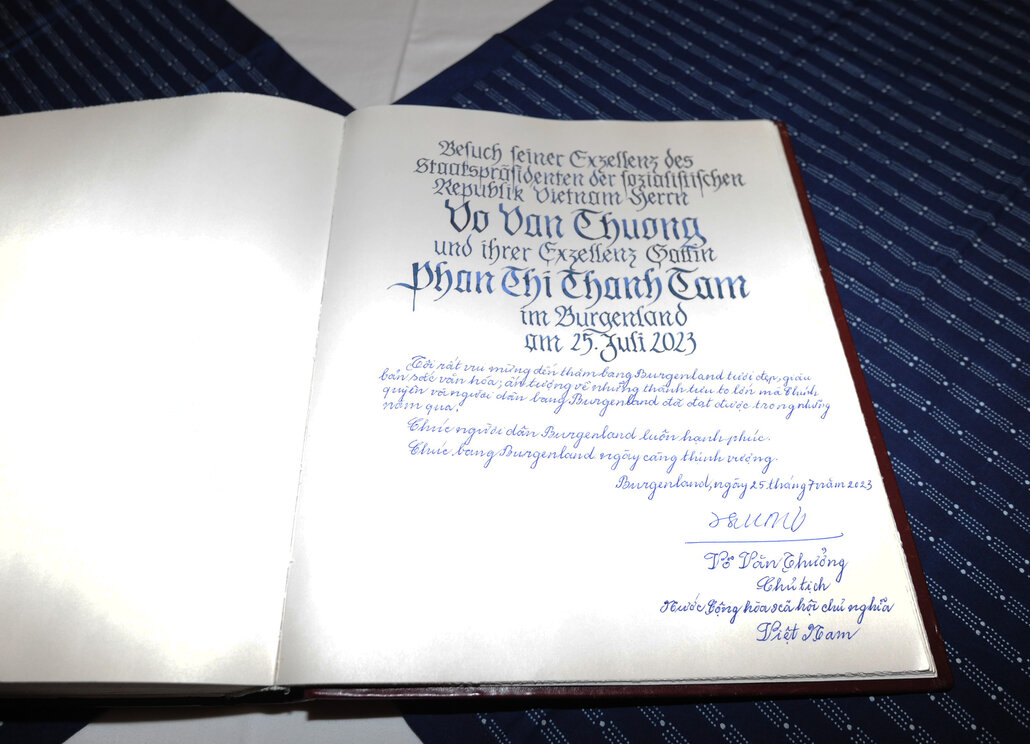 Besuch seiner Exzellenz des
Staatspräsidenten der sozialistischen
Republik Vietnam Herrn
Vo Van Thuong
und ihrer Exzellenz Gattin
Phan Thi Thanh Tam
im Burgenland
am 25. Juli 2023
Tôi rất vui mừng đến thăm bang Burgenland tươi đẹp, giàu
bản sắc văn hóa; ấn tượng về những thành tựu to lớn mà Chính
quyền và người dân bang Burgenland đã đạt được trong những
năm qua.
Chúc người dân Burgenland luôn hạnh phúc.
Chúc bang Burgenland ngày càng thịnh vượng.
Burgenland, ngày 25 tháng 7 năm 2023
Võ Văn Thưởng
Chủ tịch
Nước Cộng hòa xã hội chủ nghĩa
Việt Nam